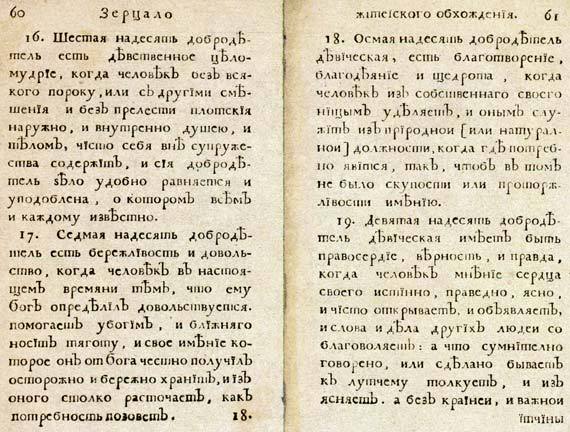 60 Зерцало
16. Шестая надесять добродѣ-
тель есть дѣвственное цѣло-
мудрїе, когда человѣкъ безъ вся-
кого пороку, или съ другїми смѣ-
шенїя и безъ прелести плотскїя
наружно, и внутренно душею, и
тѣломъ, чїсто себя внѣ супруже-
ства содержїтъ, и сїя добродѣ-
тель ѕѣло удобно равняется и
уподоблена, о которомъ всѣмъ
и каждому извѣстно.
17. Седмая надесять добродѣ-
тель есть бережлївость и доволь-
ство, когда человѣкъ въ настоя-
щемъ времяни тѣмъ, что ему
богъ опредѣлїлъ довольствуется.
помогаетъ убогїмъ, и блїжняго
носїтъ тяготу, и свое имѣнїе ко-
торое онъ отъ бога честно получїлъ
осторожно и бережно хранїтъ, и їзъ
оного столко расточаетъ, какъ
потребность позоветъ. 18.
жїтеїского обхожденїя. 61
18. Осмая надесять добродѣтель
дѣвїческая, есть благотворенїе,
благодѣянїе и щедрота, когда
человѣкъ изъ собственнаго своего
нїщымъ удѣляетъ, и онымъ слу-
жїтъ изъ прїроднои [или натурал-
нои] должности, когда гдѣ потреб-
но явїтся, такъ, чтобъ въ томъ
не было скупости или проторж-
лївости имѣнїю.
19. Девятая надесять добродѣ-
тель дѣвїческая имѣетъ быть
правосердїе, вѣрность, и правда,
когда человѣкъ мнѣнїе сердца
своего истїнно, праведно, ясно,
и чїсто открываетъ, и объявляетъ,
и слова и дѣла другїхъ людеи со
благоволяетъ: а что сумнїтелно
говорено, или сдѣлано бываетъ
къ лутчему толкуетъ, и изъ
ясняетъ. а безъ країнеи, и важнои
їпчїны